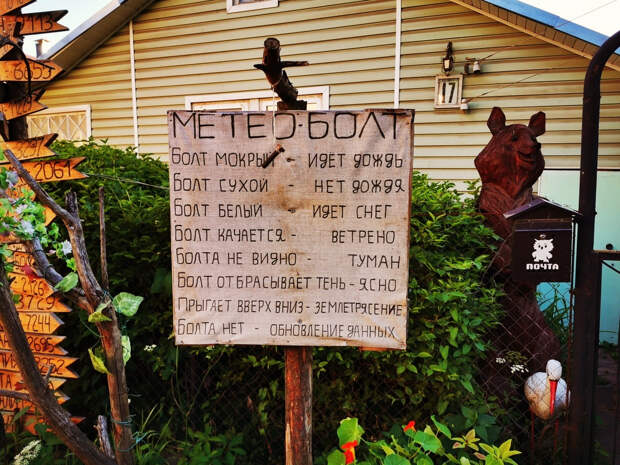 МЕТЕО-БОЛТ
БОЛТ МОКРЫЙ - ИДЁТ ДОЖДЬ
БОЛТ СУХОЙ - НЕТ ДОЖДЯ
БОЛТ БЕЛЫЙ - ИДЕТ СНЕГ
БОЛТ КАЧАЕТСЯ - ВЕТРЕНО
БОЛТА НЕ ВИДНО - ТУМАН
БОЛТ ОТБРАСЫВАЕТ ТЕНЬ - ЯСНО
ПРЫГАЕТ ВВЕРХ ВНИЗ - ЗЕМЛЕТРЯСЕНИЕ
БОЛТА НЕТ - ОБНОВЛЕНИЕ ДАННЫХ
17
ПОЧТА